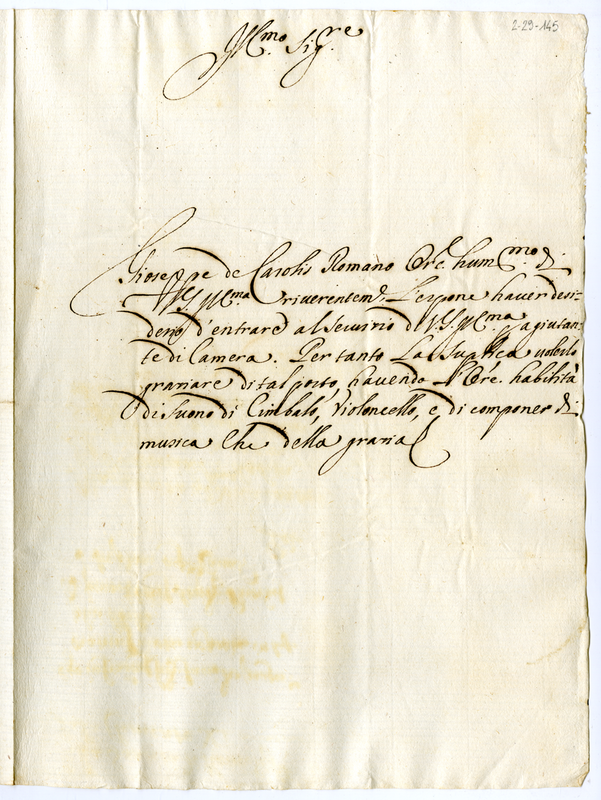 2-29-145
Ill.mo Sig.re
Gioseppe de Carolis Romano Ore. hum.mo di
V.S. Ill.ma riverentem.e l'espone haver desi-
derio d'entrare al servitio di V.S. Ill.ma p agiutan-
te di Camera. Per tanto La Suplica volerlo
gratiare di tal posto, havendo l'Ore. habilità
di suono di Cimbalo, Violoncello, e di componer di
musica Che della gratia